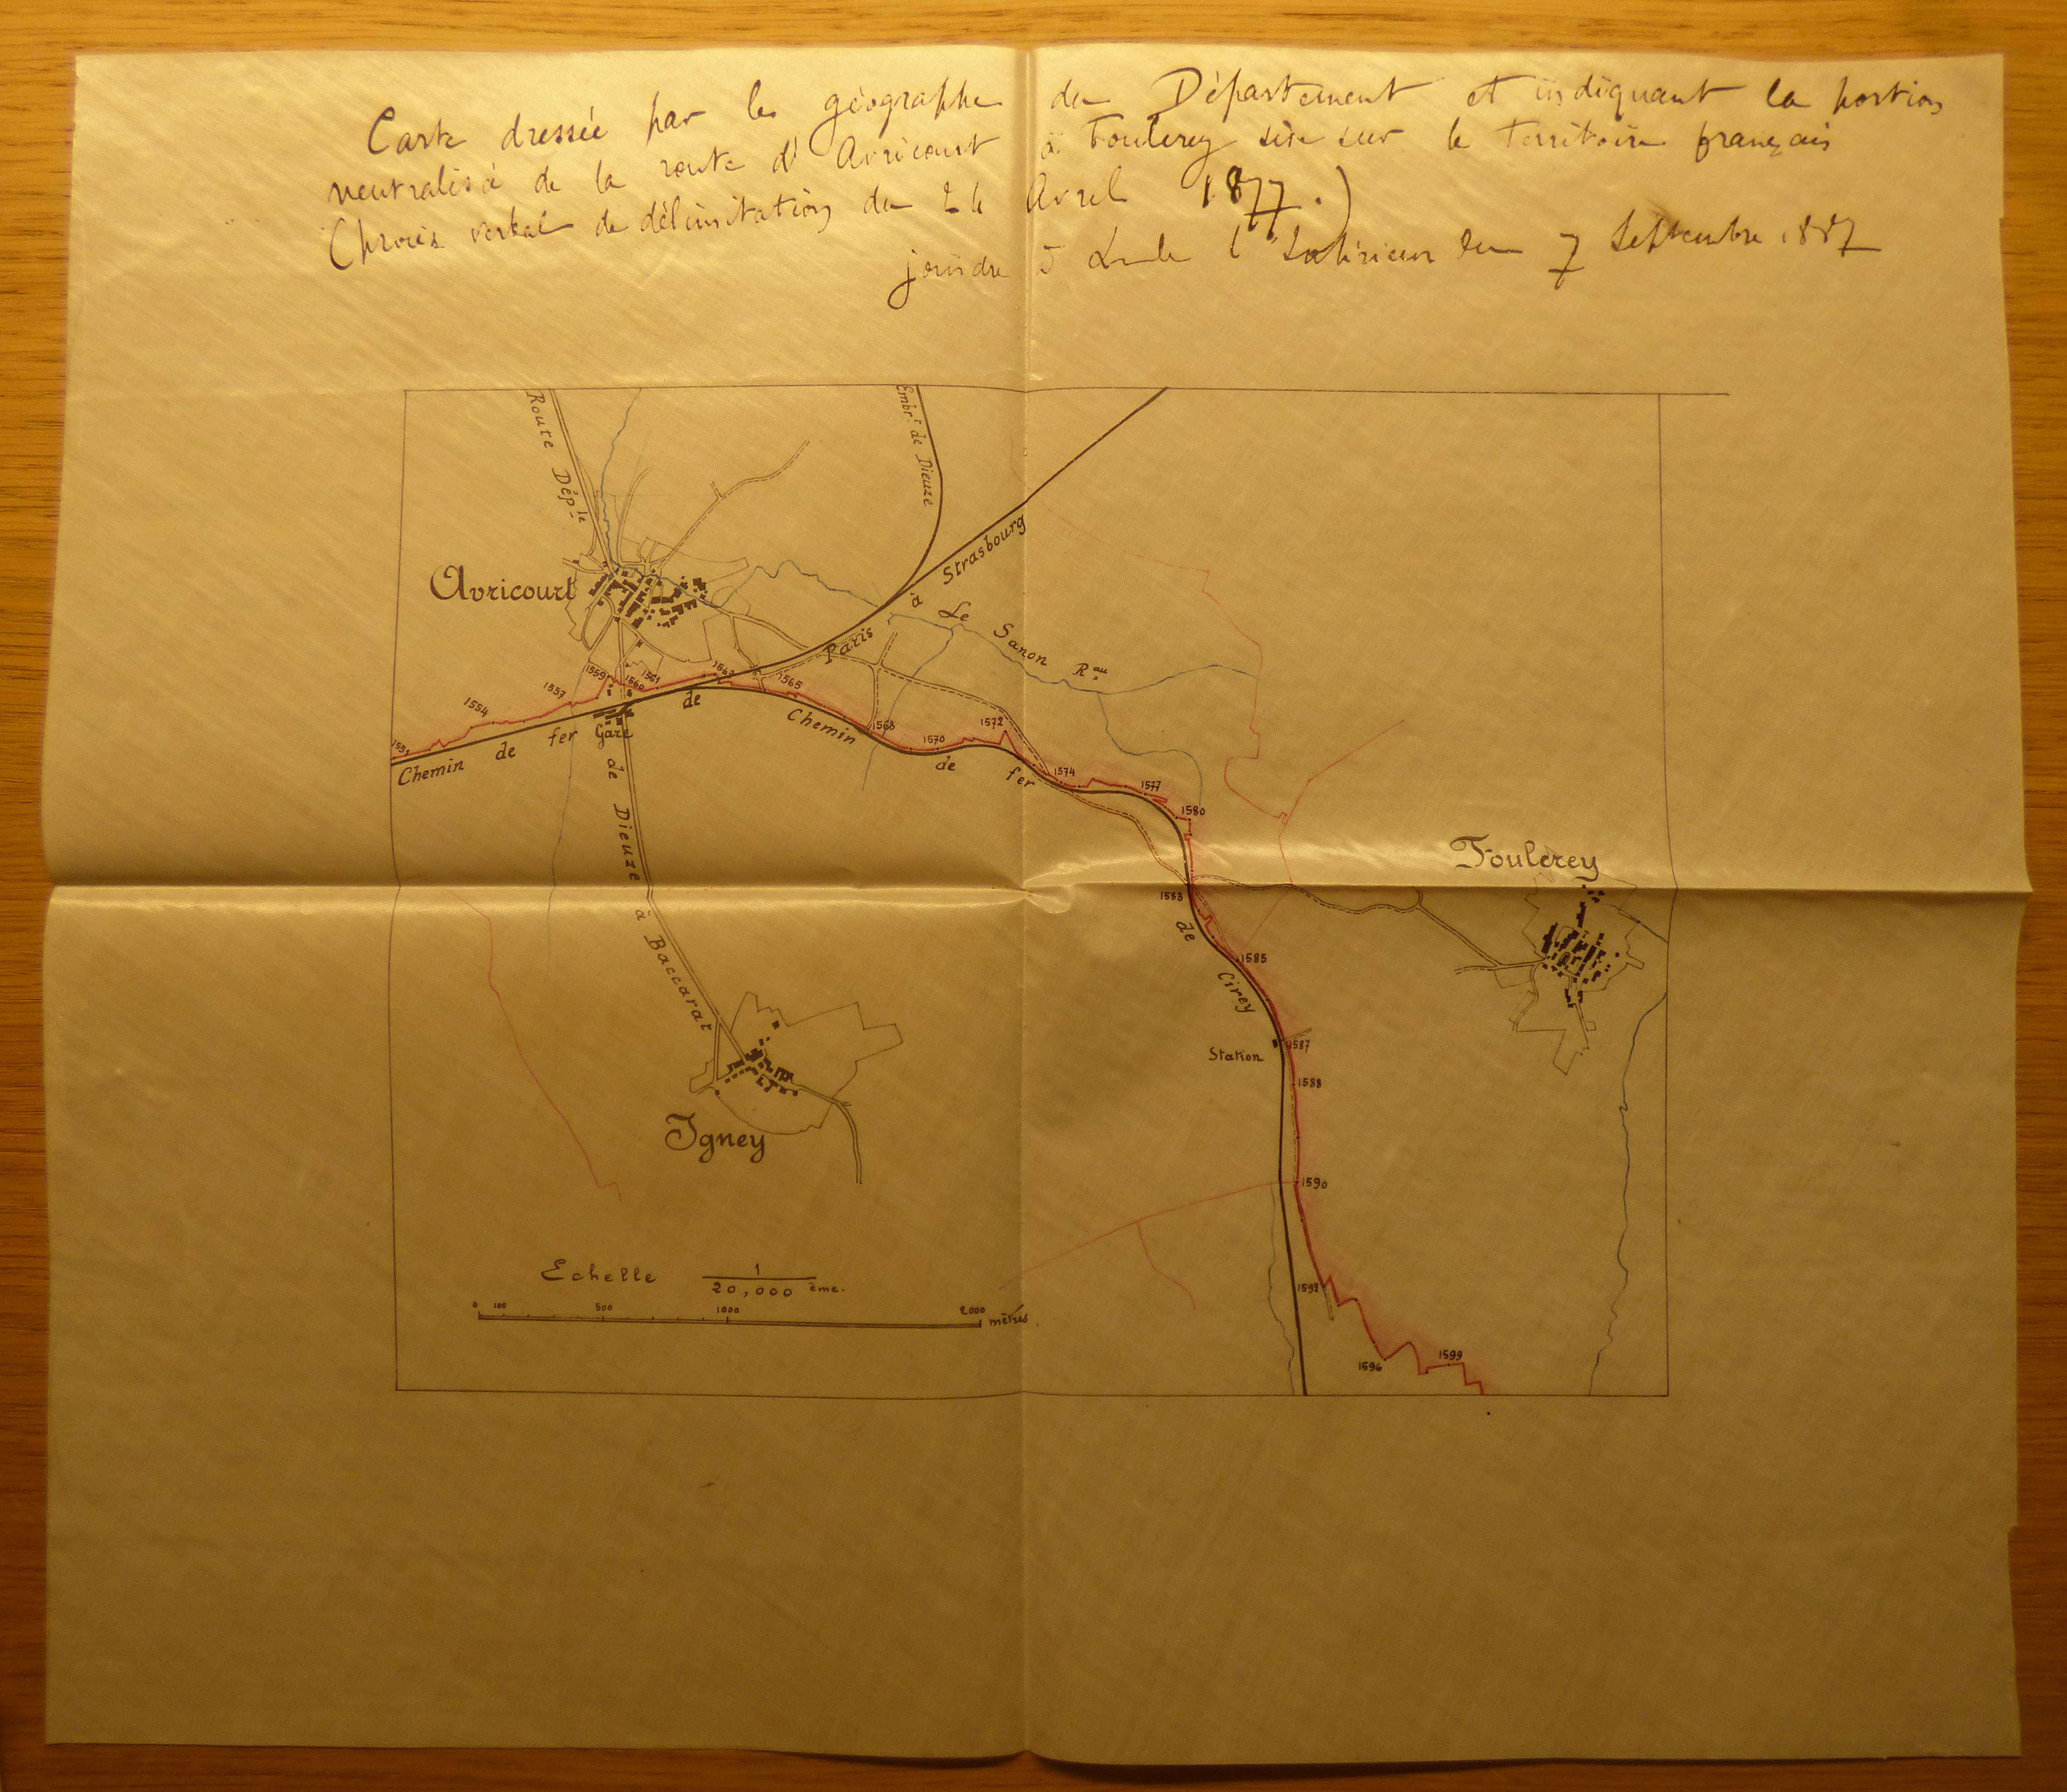 Carte dressée par le géographe du Département et indiquant la portion
neutralisée de la route d'Avricourt à Foulcrey sise sur le territoire français
(procès verbal de délimitation du 24 Avril 1877.)
joindre à l'Intérieur du 7 Septembre 1887
Route Dép.le
Embr.t de Dieuze
Strasbourg
à
Avricourt
Le Sanon R.au
Paris
1559
1561
1563
1560
1565
1557
de
1554
Chemin
1568
1572
Gare
fer
1570
1551
de
de
Chemin
fer
1574
de Dieuze
1577
1580
Foulcrey
1583
à Baccarat
de
1585
Cirey
Station
1587
1588
Igney
1590
Echelle 1
20,000 ème.
1592
0 100 500 1000 2000 mètres.
1596
1599